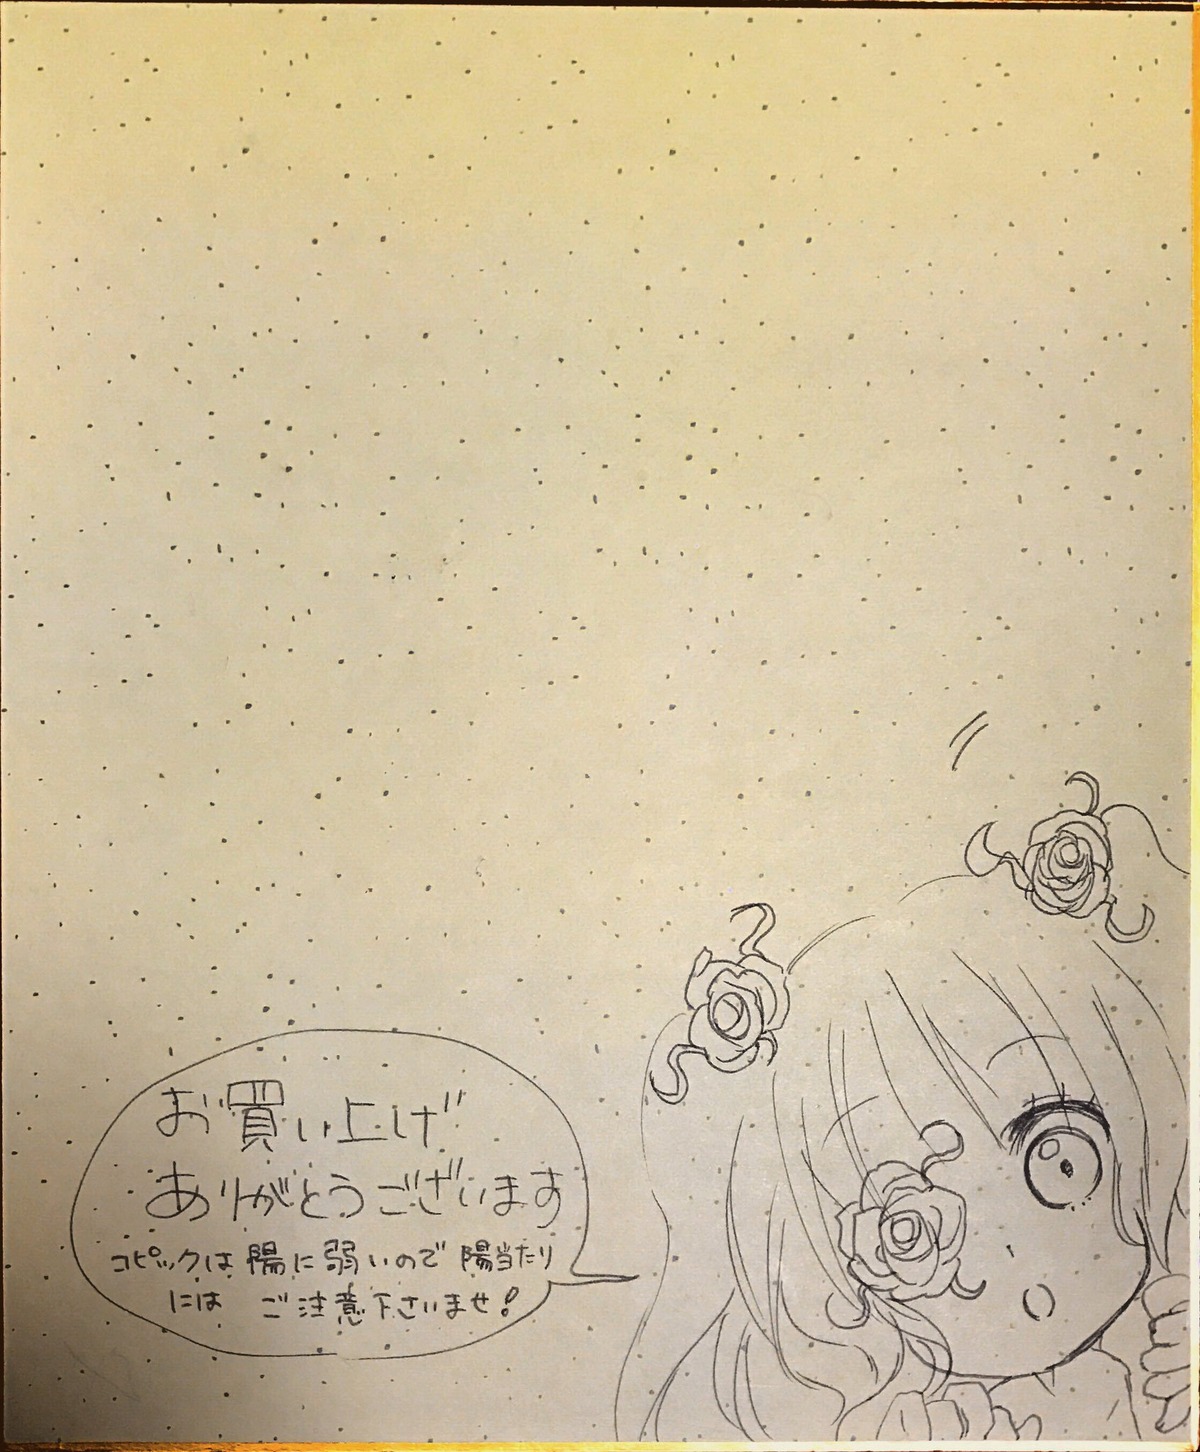 お買い上げ
ありがとうございます
コピックは陽に弱いので陽当たり
には ご注意下さいませ!